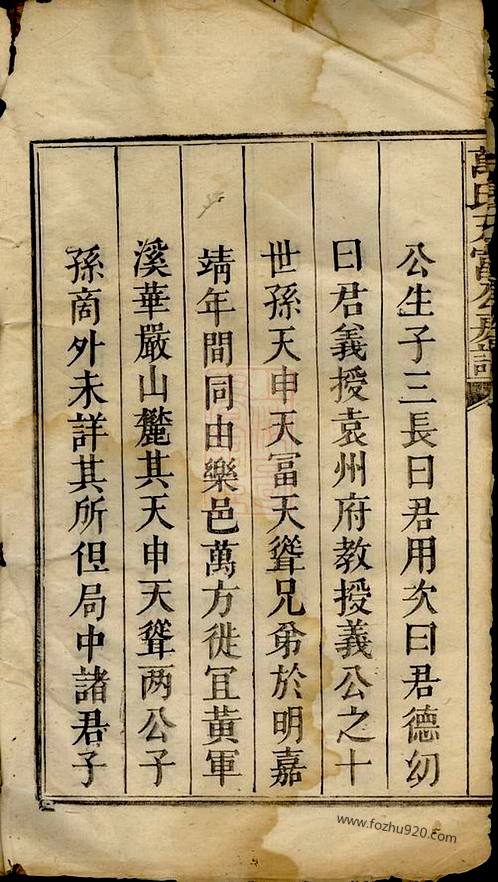 萬氏天富公房譜
公生子三長曰君用次曰君德幼
曰君義授袁州府教授義公之十
世孫天申天冨天聳兄弟於明嘉
靖年間同由樂邑萬方徙冝黃軍
溪華嚴山麓其天申天聳两公子
孫啇外未詳其所但局中諸君子
www.fozhu920.com